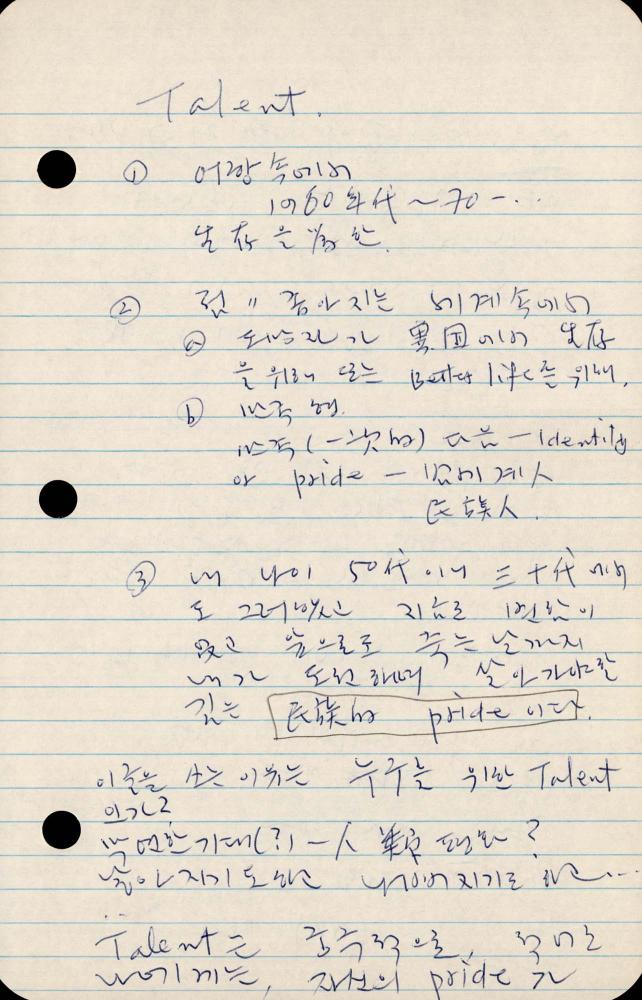 Talent.
① 어항 속에서
1960年代 ~ 70 - ...
生存을 위한.
② 점〃 좁아지는 세계속에서
ⓐ 도망자가 異国에서 生存
을 위해 또는 Better life를 위해.
ⓑ 민족
민족 (一次的) 다음 - identity
or pride - 세계人
民族人.
③ 내 나이 50代이나 三十代에서
도 그러했고 지금도 변함이
없고 앞으로도 죽는 날까지
내가 도전하며 살아가야할
길은 民族的 pride이다.
이글을 쓰는 이유는 누구를 위한 Talent
인가?
막연한 기대(?) - 人類 평화?
좋아지기도 하고 나빠지기도 하고...
..
Talent는 궁극적으로, 적어도
나에게는, 자신의 pride가